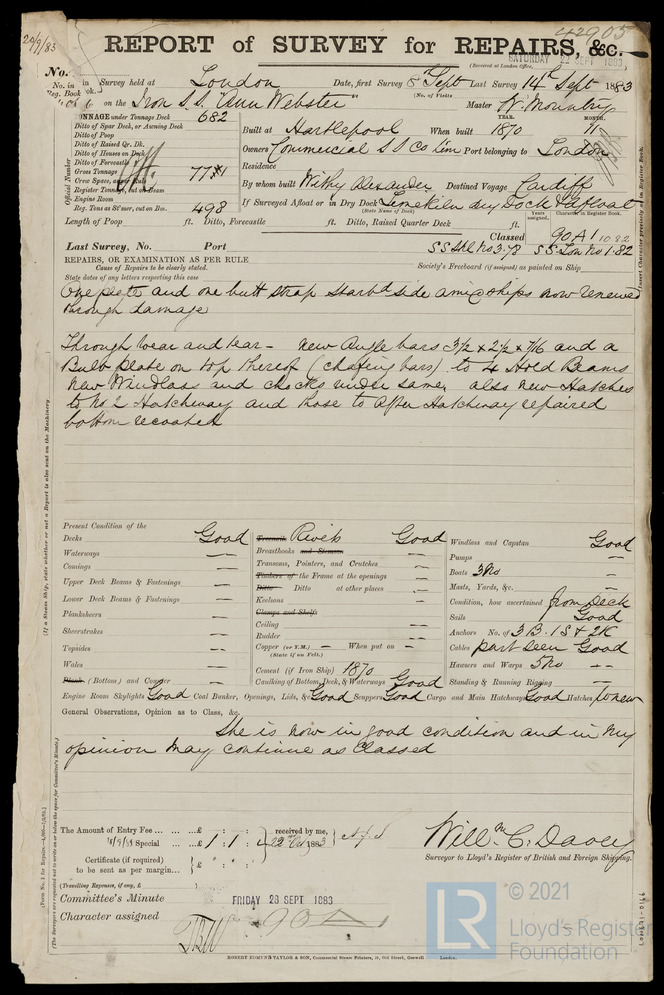 20/9/83
42905
REPORT of SURVEY for REPAIRS, &c.
(Received at London Office,
SATURDAY 22 SEPT 1883
No.
No. in Survey held at London Date, first Survey 8 Sept Last Survey 14th Sept 1883
Reg. Book
(No. of Visits
on the Iron S.S. Ann Webster Master
TONNAGE under Tonnage Deck 682
Ditto of Spar Deck, or Awning Deck
Ditto of Poop
Ditto of Raised Qr. Dk.
Ditto of Houses on Deck
Ditto of Forecastle
Gross Tonnage
Crew Space, as per Rule
Register Tonnage, cut on Beam
Engine Room
Reg. Tons as St'mer, cut on Bm. 498
Official Number
YEAR. MONTH.
Built at Hartlepool When built 1870 11
Owners Commercial S S Co Lim Port belonging to London
Residence
By whom built Withy Alexander Destined Voyage Cardiff
If Surveyed Afloat or in Dry Dock Limekiln dry Dock & Afloat
(State Name of Dock)
Years assigned. Character in Register Book.
Length of Poop ft. Ditto, Forecastle ft. Ditto, Raised Quarter Deck ft.
Classed 90A1 10 82
Last Survey, No. Port
SS Shl No 3.78 SS Lon No 1.82
REPAIRS, OR EXAMINATION AS PER RULE
Cause of Repairs to be clearly stated.
Society's Freeboard (if assigned) as painted on Ship
State dates of any letters respecting this case
One plate and one butt strap starbd side amidships now renewed
through damage
Through wear and tear - new Angle bars 3½ x 2½ x 7/16 and a
Bulb plate on top thereof (chafing bars) to 4 Hold Beams
New Windlass and chocks under same, also new Hatches
to No 2 Hatchway and those to after Hatchway repaired
bottom recoated
Present Condition of the
Decks Good
Waterways —
Comings —
Upper Deck Beams & Fastenings —
Lower Deck Beams & Fastenings —
Planksheers —
Sheerstrakes —
Topsides —
Wales —
Plank (Bottom) and Counter —
Treenails Rivets Good
Breasthooks and Stemson —
Transoms, Pointers, and Crutches —
Timbers of the Frame at the openings —
Ditto Ditto at other places —
Keelsons —
Clamps and Shelfs
Ceiling —
Rudder —
Copper (or Y.M.) — When put on —
(State if on Felt.)
Cement (if Iron Ship) 1870
Caulking of Bottom, Deck, & Waterways Good
Windlass and Capstan Good
Pumps —
Boats 3 No —
Masts, Yards, &c. —
Condition, how ascertained from Deck
Sails Good
Anchors No. of 3 B. 1 S & 2 K
Cables part seen Good
Hawsers and Warps 5 No —
Standing & Running Rigging —
Engine Room Skylights Good Coal Bunker, Openings, Lids, &c. Good Scuppers Good Cargo and Main Hatchways Good Hatches
General Observations, Opinion as to Class, &c.
She is now in good condition and in my
opinion may continue as Classed
The Amount of Entry Fee ... ... ...£ : :
Special ...£ 1 : 1 :
received by me,
1883
Certificate (if required)
to be sent as per margin...
(Travelling Expenses, if any, £ )
Willm C. Davey
Surveyor to Lloyd's Register of British and Foreign Shipping.
Committee's Minute FRIDAY 28 SEPT 1883
Character assigned 90A1
ROBERT EDMUND TAYLOR & SON, Commercial Steam Printers, 19, Old Street, Goswell London.
LR
© 2021
Lloyd's Register
Foundation